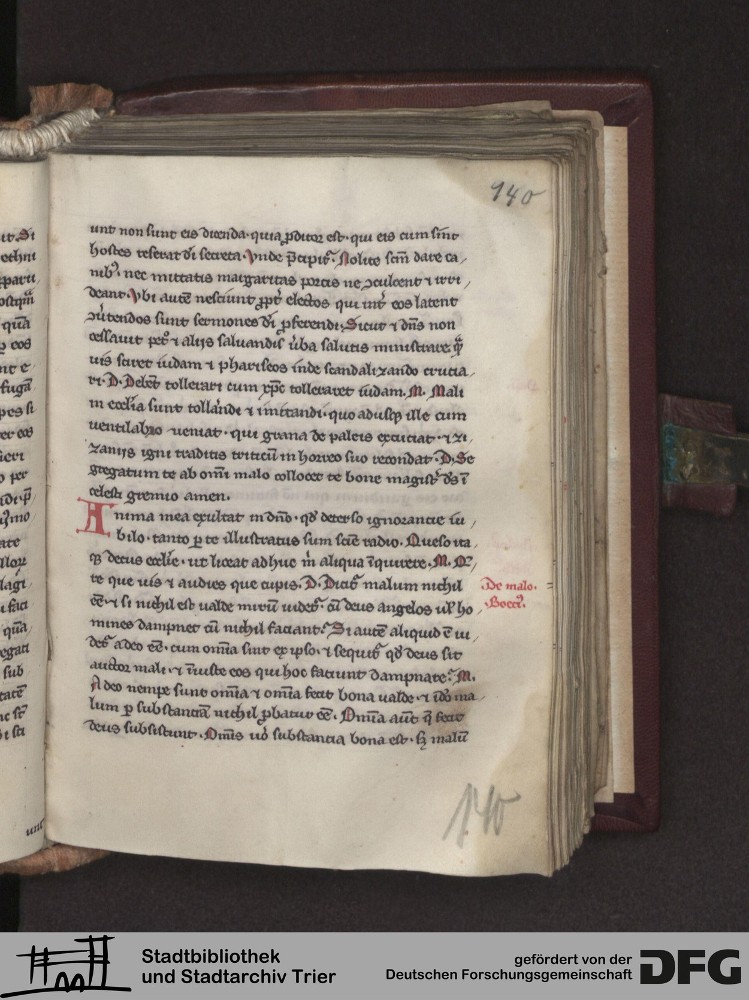 140
unt non sunt eis dicenda · quia ꝓditor est · qui eis cum sint
hostes reserat di secreta · Vnde p̄cipit᷑ · Nolite scm̄ dare ca
nib᷒ · nec mittatis margaritas porcis ne ↄculcent ⁊ irri
deant · Vbi autē nesciunt ꝓpt̓ electos qui int̓ eos latent
sermones di ꝓferendi · Sicut ⁊ dn̄s non
cessauit pet̓o ⁊ alijs saluandis ūba salutis ministrare · q̄
uis sciret iudam ⁊ phariseos inde scandalizando crucia
ri · D · Debēt tollerari cum xp̄c tolleraret iudam · M · Mali
in ecclīa sunt tollandi ⁊ imitandi · quo adusqꝫ ille cum
ventilabro veniat · qui grana de paleis excuciat · ⁊ zi
zanijs igni traditis triticū in horreo suo recondat · D · Se
gregatum te ab omī malo collocet te bone magist̓ ds̄ ī
celesti gremio amen ·
Anima mea exultat in dn̄o · qd̓ deterso ignorantie nu
bilo · tanto ꝑ te illustratus sum scīe radio · Queso ita
qꝫ decus ecclīe · ut liceat adhuc m̄ aliqua īquirere · M · Qͤ
te que uis ⁊ audies que cupis · D · Dicit᷑ malum nichil
ēē · ⁊ si nichil est valde mirū uidet᷑ · cū deus angelos ul̓ ho
mines dampnet cū nichil faciant · Si autē aliquid ē ui
det᷑ a deo ēē · cum om̄ia sint ex ipso · ⁊ sequit᷑ qd̓ deus sit
auctor mali · ⁊ īiuste eos qui hoc faciunt dampnare · M ·
A deo nempe sunt om̄ia ⁊ om̄ia fecit bona valde · ⁊ iō ma
lum ꝑ substanciā nichil ꝓbatur ēē · Om̄ia aut̄ q̄ fecit
deus subsistunt · Om̄is uō substancia bona est · sꝫ malū
De malo ·
Boeci᷒ ·
140
Stadtbibliothek
und Stadtarchiv Trier
gefördert von der
Deutschen Forschungsgemeinschaft
DFG